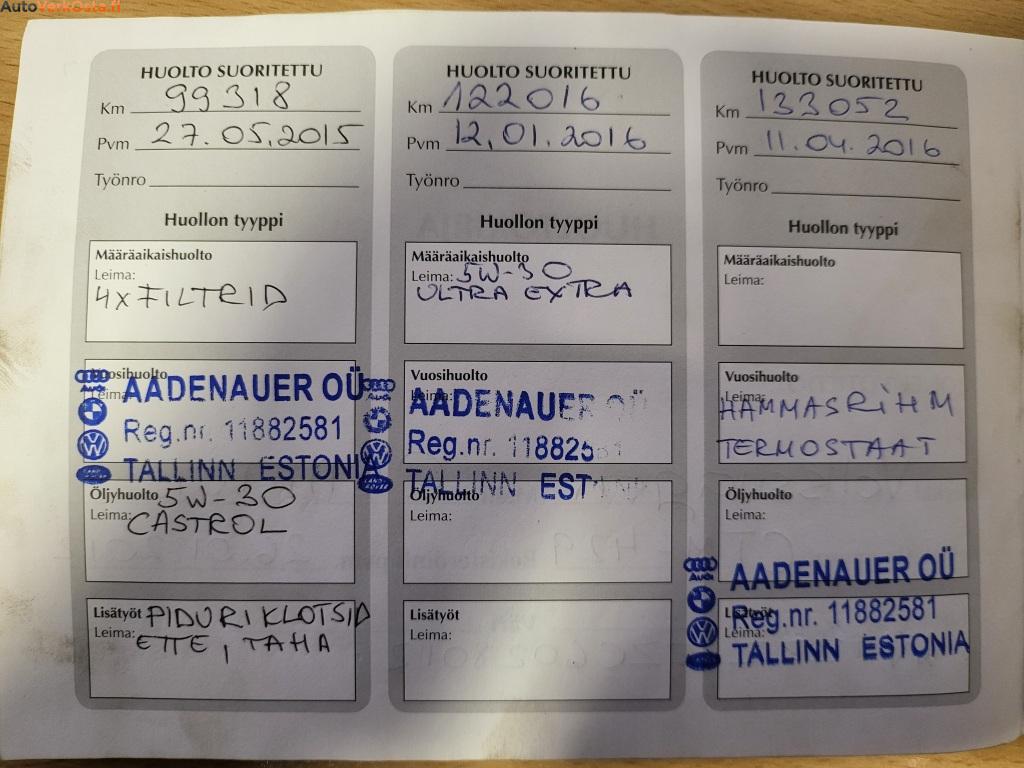 AutoVerkosta.fi
HUOLTO SUORITETTU
Km 99318
Pvm 27.05.2015
Työnro
Huollon tyyppi
Määräaikaishuolto
Leima:
4x FILTRID
Vuosihuolto
Leima:
AADENAUER OÜ
Reg.nr. 11882581
TALLINN ESTONIA
Öljyhuolto 5W-30
Leima: CASTROL
Lisätyöt PIDURIKLOTSID
Leima: ETTE, TAHA
HUOLTO SUORITETTU
Km 122016
Pvm 12.01.2016
Työnro
Huollon tyyppi
Määräaikaishuolto
Leima: 5W-30
ULTRA EXTRA
Vuosihuolto
Leima:
AADENAUER OÜ
Reg.nr. 11882581
TALLINN EST
Öljyhuolto
Leima:
Lisätyöt
Leima:
HUOLTO SUORITETTU
Km 133052
Pvm 11.04.2016
Työnro
Huollon tyyppi
Määräaikaishuolto
Leima:
Vuosihuolto
Leima:
HAMMASRIHM
TERMOSTAAT
Öljyhuolto
Leima:
AADENAUER OÜ
Lisätyöt
Reg.nr. 11882581
Leima:
TALLINN ESTONIA